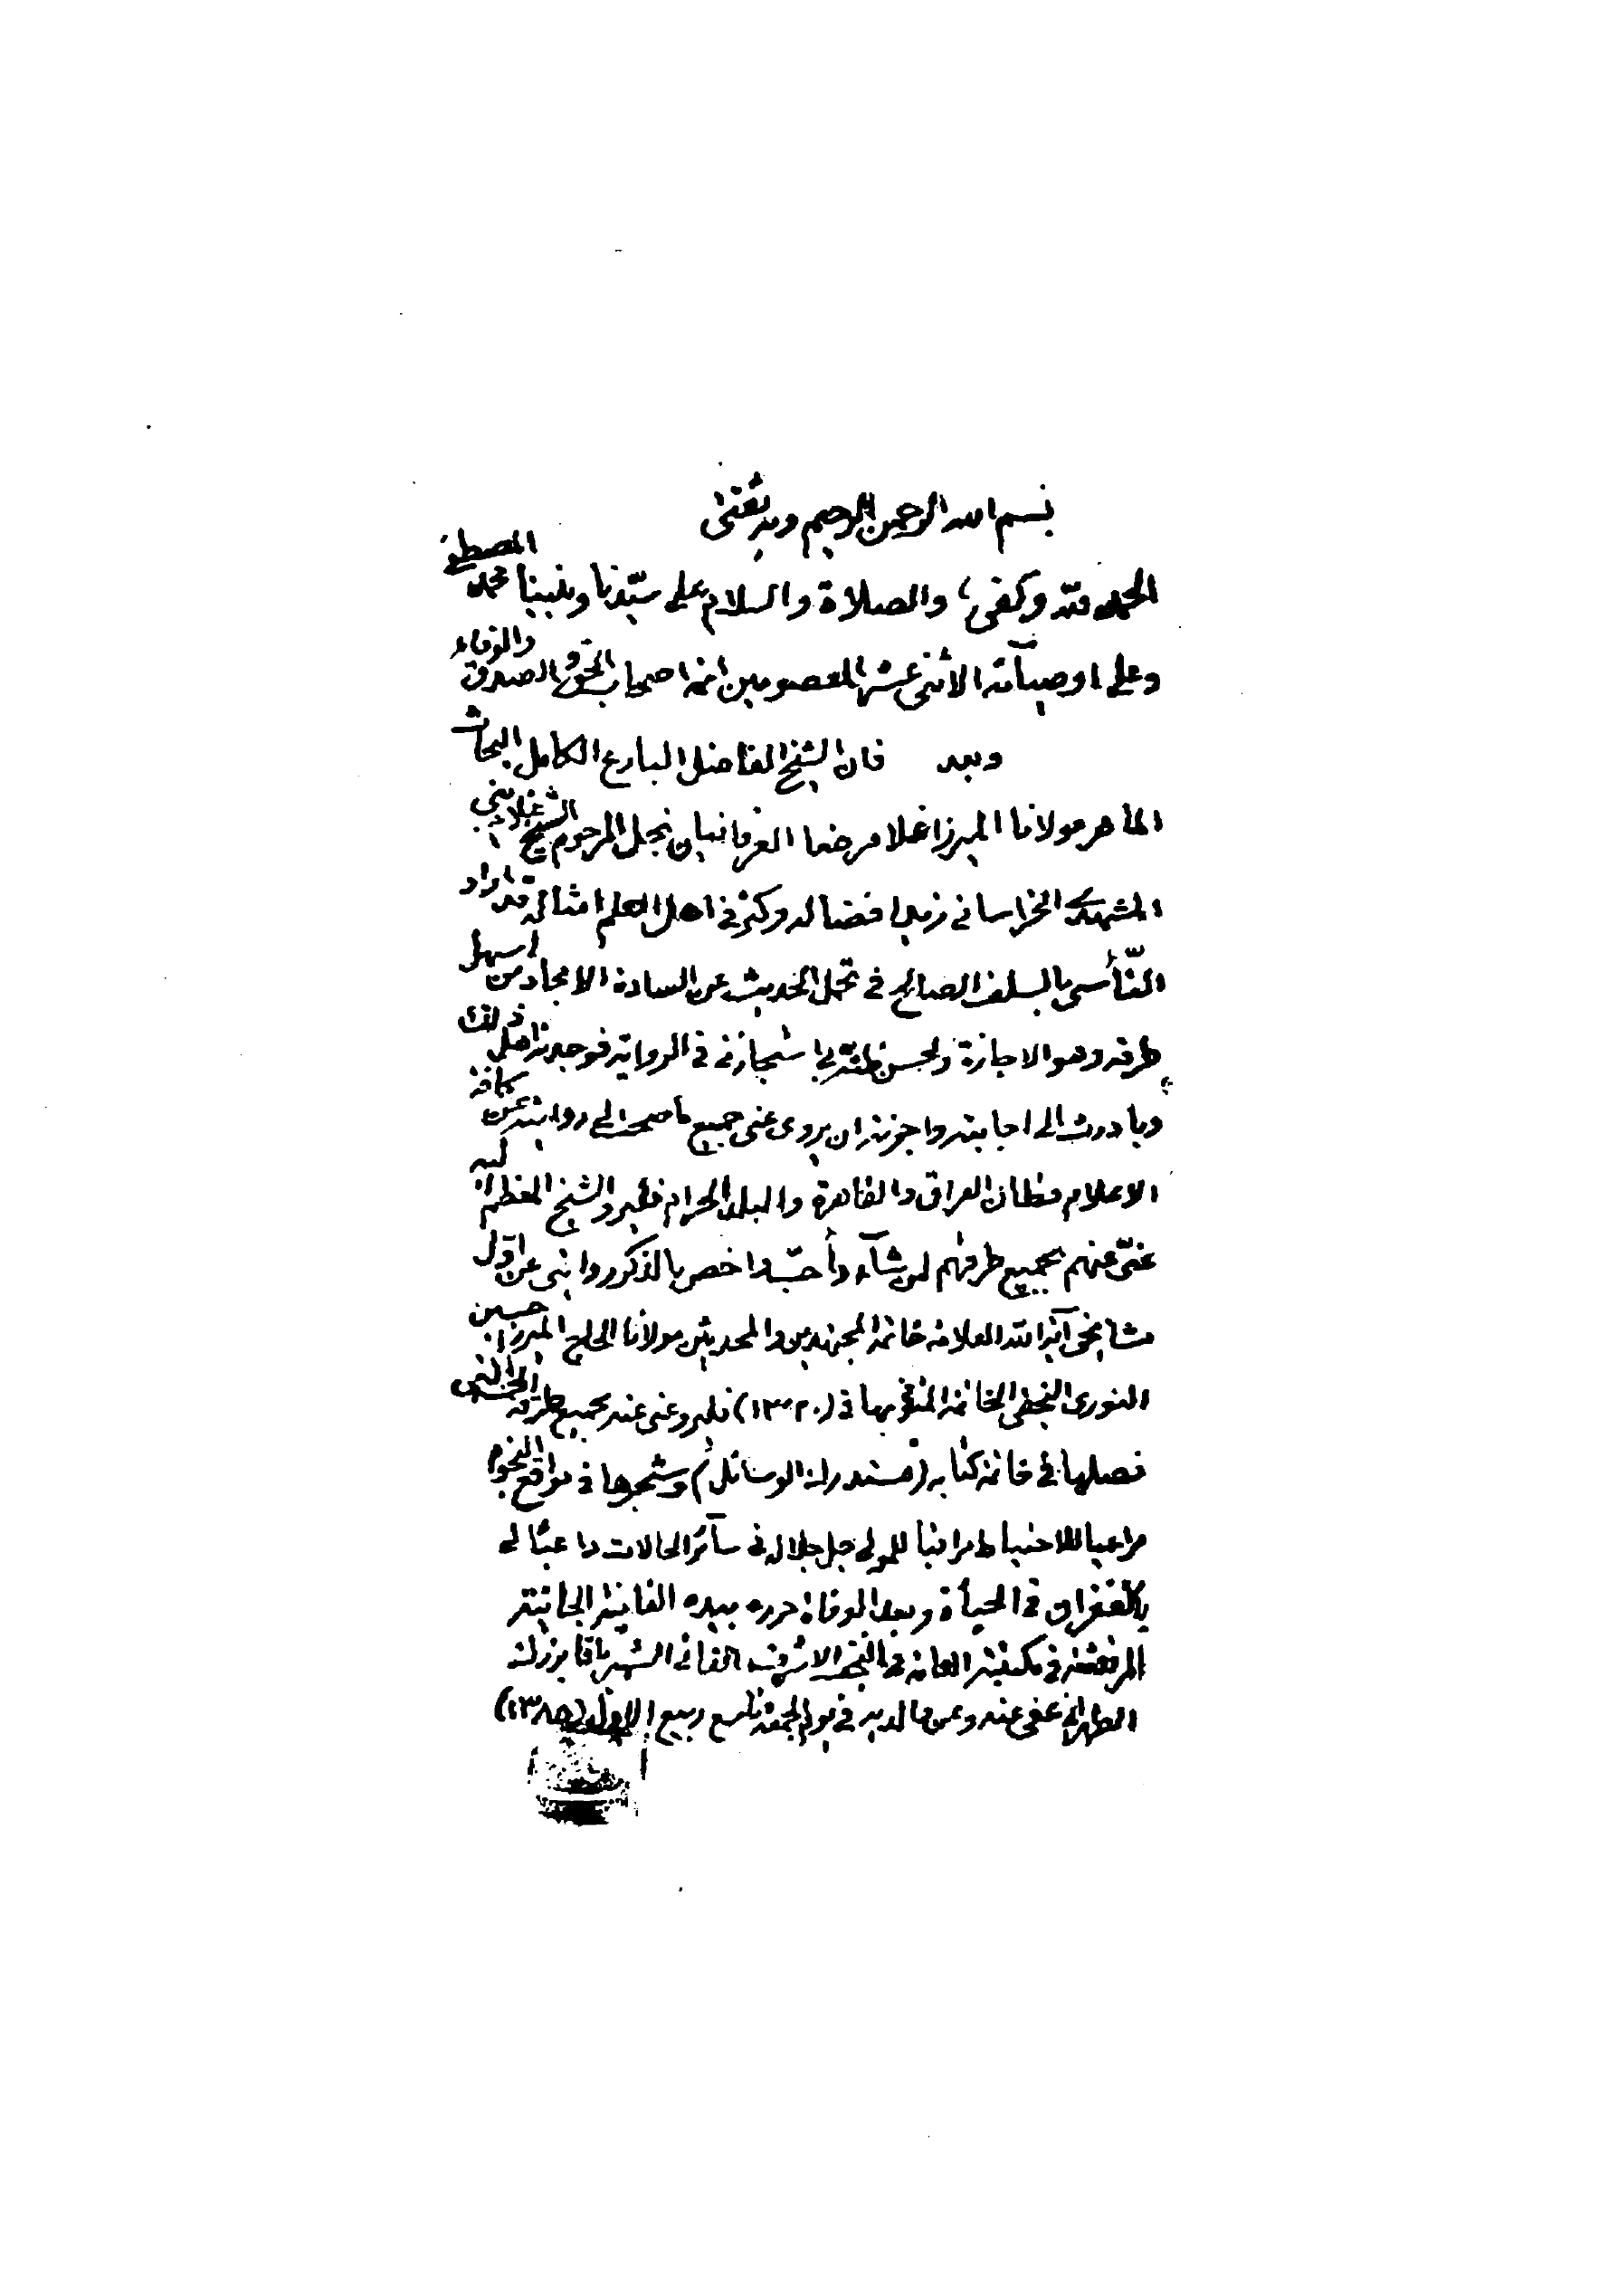 بسم الله الرحمن الرحيم وبه ثقتى
الحمد لله وكفى، والصلاة والسلام على سيّدنا ونبينا محمد المصطفى
وعلى اوصيآئه الاثنى عشر المعصومين ائمة اصحاب الحق والصدق والوفاء
وبعد فان الشيخ الفاضل البارع الكامل البحاث
الماهر مولانا الميرزا غلامرضا العرفانيان نجل المرحوم الشيخ
المشهدى الخراسانى زيد افضاله وكثر فى اهل العلم امثاله قد اراد
التّأسى بالسلف الصالح فى تحمل الحديث عن السادة الامجاد من اسهل
طرقه وهو الاجازة ولحسن ظنّه بى استجازنى فى الرواية فوجدته اهلا لذلك
وبادرت الى اجابته واجزته ان يروى عنى جميع ما صحت لى روايته عن كافة
الاعلام قطان العراق والقاهرة والبلد الحرام فليرو الشيخ المعظم اليه
عنّى عنهم بجميع طرقهم لمن شآء وأحبّ واخص بالذكر روايتى عن اول
مشايخى آية الله العلامة خاتمة المجتهدين والمحدثين مولانا الحاج الميرزا حسين
النورى النجفى الخاتمة المتوفى بها فى (١٣٢٠) فليرو عنى عنه بجميع طرقه الخمسة التى
فصلها فى خاتمة كتابه (مستدرك الوسائل) وشجرها فى مواقع النجوم
مراعيا للاحتياط مراقبا للمولى جل جلاله فى سآئر الحالات داعيًا لى
بالغفران فى الحيأة وبعد الوفاة حرره بيده الفانية الجانية
المرتعشة فى مكتبته العامة فى النجف الاشرف الفانى الشهير باقا بزرك
الطهرانى عفى عنه وعن والديه فى يوم الجمعة تاسع ربيع الاول (١٣٨٥)